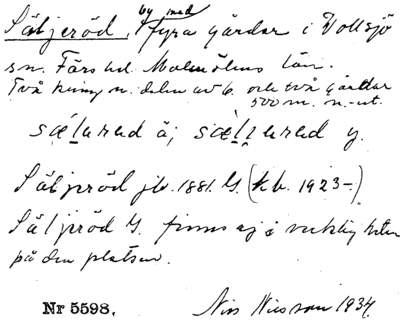 by med
Säljeröd, fyra gårdar i Vollsjö
sn. Färs hd. Malmöhus län.
Två n. delen av b. och två gårdar
500 m. n.-ut.
sælarud ä; sællarud y.
Säljeröd jb. 1881. G. (kb. 1923-)
Säljröd G. finns ej i verkligheten
på den platsen.
Nr 5598.
Nils Nilsson 1934.